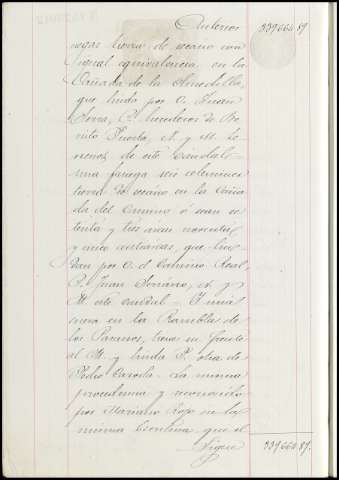 Anterior 339660 89
negas tierra de secano con
igual equivalencia, en la
Cañada de la
que linda por O. Juan
P. herederos de Be-
nito Puerta, N. y M. te-
rrenos de este caudal =
una fanega seis celemines
tierra de secano en la Caña-
da del Camino ó sean se-
tenta y tres áreas noventa
y cinco centiáreas, que lin-
dan por O. el Camino Real,
P. Juan Soriano, N. y
M. este caudal = Y una
en la Rambla de
los Paranos, tiene su frente
al M. y linda P. otra de
Pedro La misma
procedencia y reconocido
por Mariano Rojo en la
misma Escritura que el
Sigue 339660 89.